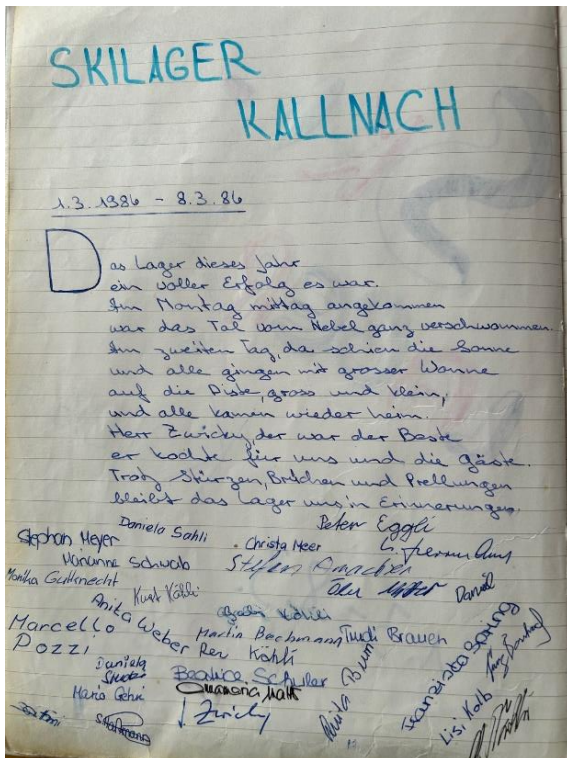 SKILAGER
KALLNACH
1.3.1986 - 8.3.86
Das Lager dieses Jahr
ein voller Erfolg es war.
Am Montag mittag angekommen
war das Tal vom Nebel ganz verschwommen.
Am zweiten Tag, da schien die Sonne
und alle gingen mit grosser Wonne
auf die Piste, gross und klein,
und alle kamen wieder heim.
Herr Zwicky, der war der Beste
er kochte für uns und die Gäste.
Trotz Stürzen, Brüchen und Prellungen
bleibt das Lager uns in Erinnerungen.
Daniela Sahli
Peter Eggli
Stephan Meyer
Christa Meer
Marianne Schwab
Stefan Amacher
Martha Gutknecht
Kurt Köhli
Daniel
Anita Weber
Köhli
Marcello
Pozzi
Martin Bechmann
Trudi Brauen
Rev Köhli
Daniela
Beatrice Schuler
Maria Gehri
Zwicky
Anita
Franziska
Lisi Kolb